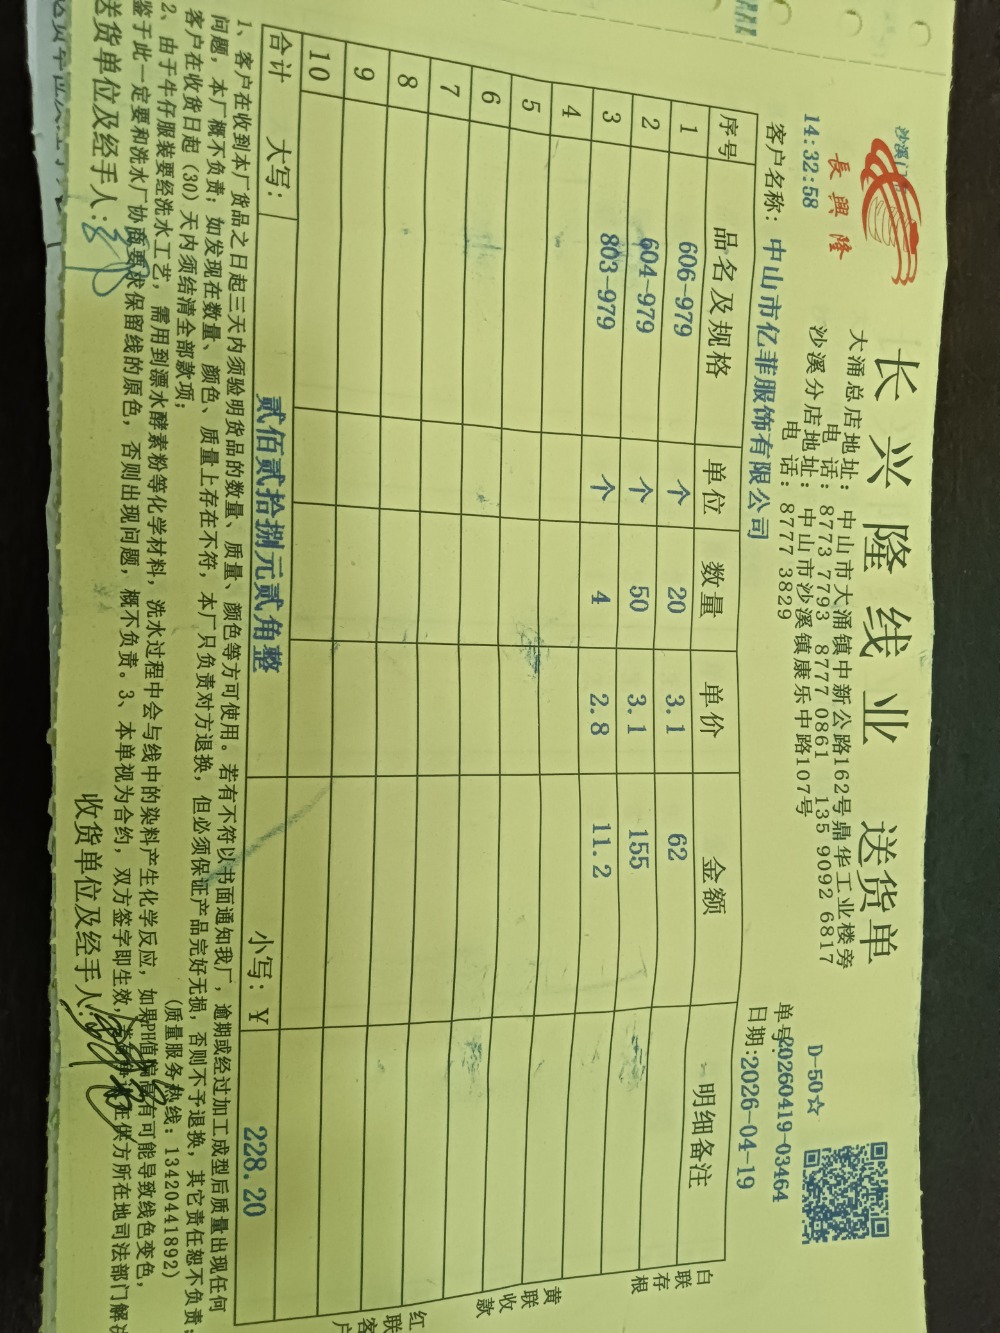 長興隆
长兴隆线业 送货单
D-50☆
大涌总店地址：中山市大涌镇中新公路162号鼎华工业楼旁
电 话：8773 7793 8777 0861 135 9092 6817
沙溪分店地址：中山市沙溪镇康乐中路107号
电 话：8777 3829
14:32:58
单号:20260419-03464
客户名称：中山市亿菲服饰有限公司
日期:2026-04-19
序号 品名及规格 单位 数量 单价 金额 明细备注
1 606-979 个 20 3.1 62
2 604-979 个 50 3.1 155
3 803-979 个 4 2.8 11.2
4
5
6
7
8
9
10
合计 大写： 贰佰贰拾捌元贰角整 小写：￥ 228.20
白联存根
黄联收款
红联客户
1、客户在收到本厂货品之日起三天内须验明货品的数量、质量、颜色等方可使用。若有不符以书面通知我厂，逾期或经过加工成型后质量出现任何
问题，本厂概不负责；如发现在数量、颜色、质量上存在不符，本厂只负责对方退换，但必须保证产品完好无损，否则不予退换，其它责任恕不负责；
客户在收货日起（30）天内须结清全部款项；
（质量服务热线：13420441892）
2、由于牛仔服装要经洗水工艺，需用到漂水酵素粉等化学材料，洗水过程中会与线中的染料产生化学反应，如果PH值偏高有可能导致线色变色，
鉴于此一定要和洗水厂协商要求保留线的原色，否则出现问题，概不负责。3、本单视为合约，双方签字即生效，在供方所在地司法部门解决
送货单位及经手人：
收货单位及经手人：